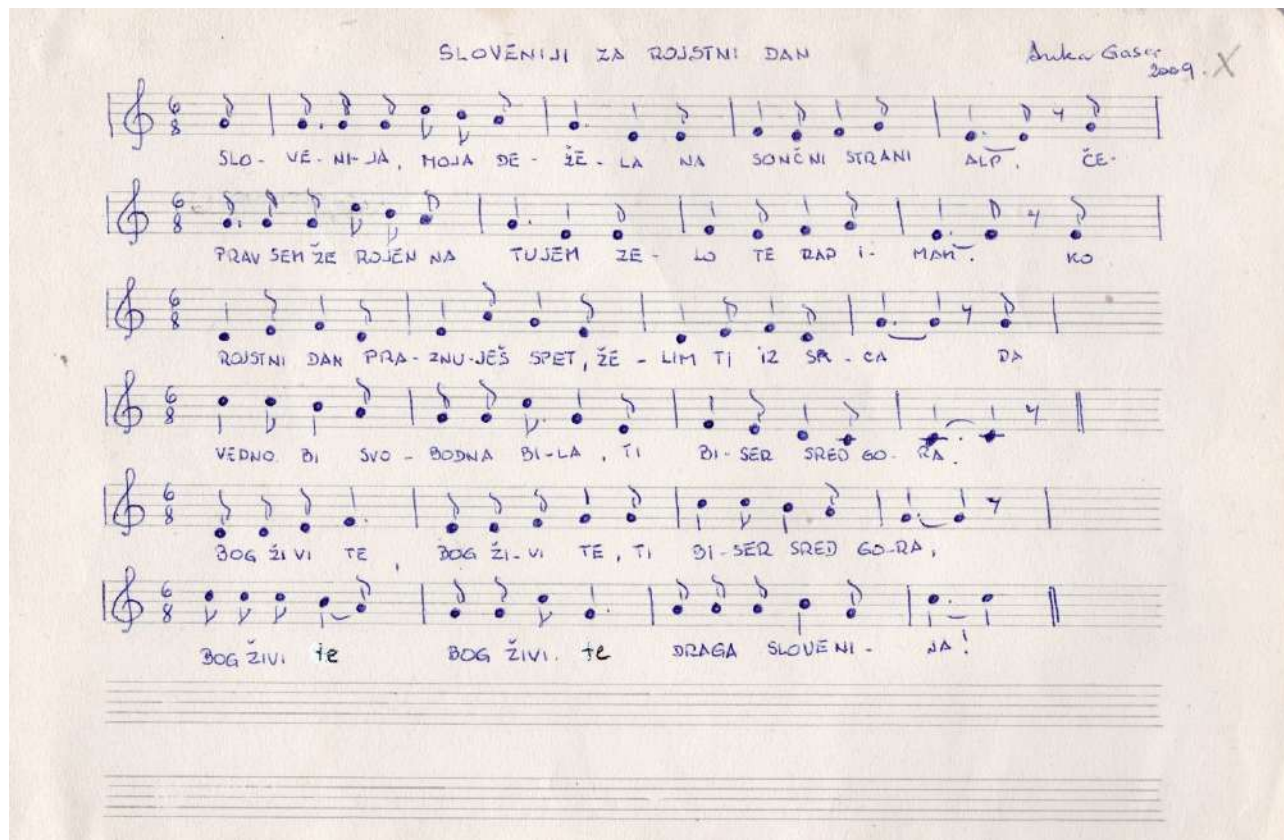 SLOVENIJI ZA ROJSTNI DAN
Anka Gaser
2009. X
6 8
SLO - VE - NI - JA, MOJA DE - ŽE - LA NA SONČNI STRANI ALP. ČE-
6 8
PRAV SEM ŽE ROJEN NA TUJEM ZE - LO TE RAD I- MAM. KO
6 8
ROJSTNI DAN PRA - ZNU - JEŠ SPET, ŽE - LIM TI IZ SR - CA DA
6 8
VEDNO BI SVO - BODNA BI - LA, TI BI - SER SRED GO - RA.
6 8
BOG ŽIVI TE, BOG ŽI - VI TE, TI BI - SER SRED GO - RA,
6 8
BOG ŽIVI te BOG ŽIVI. te DRAGA SLOVENI - JA!